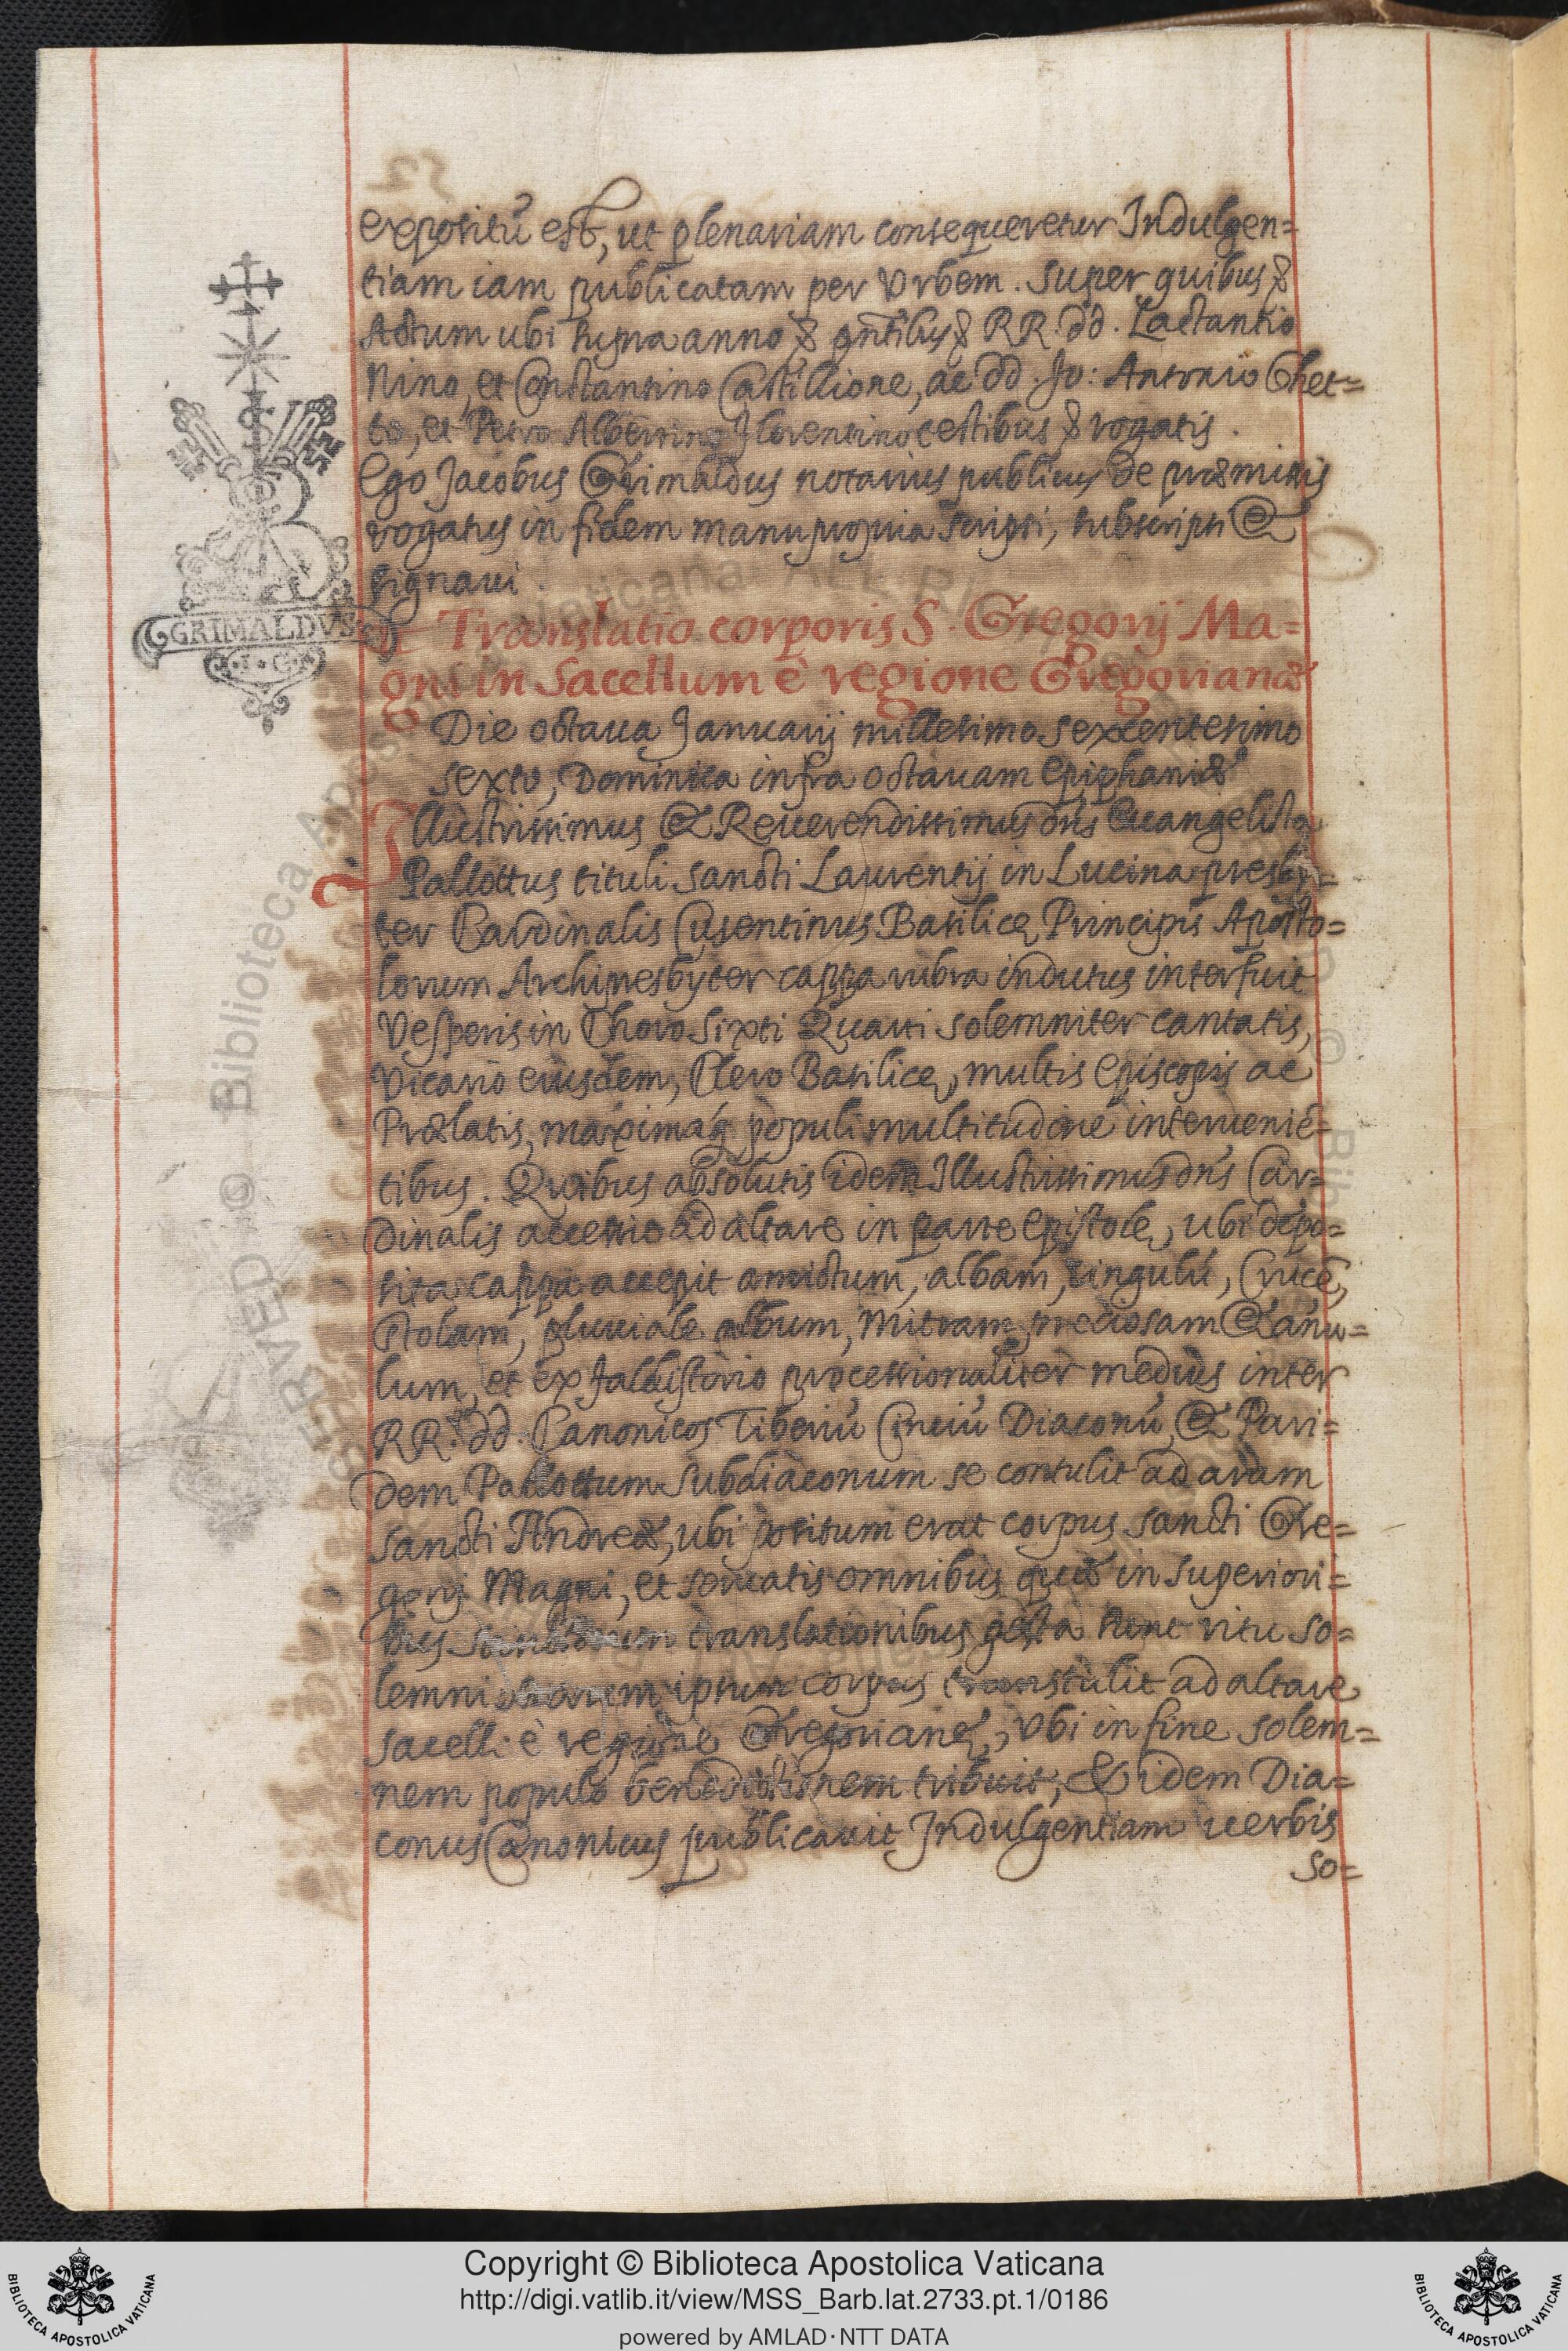 expositũ est, ut plenariam consequeretur Indulgen=
tiam iam publicatam per Vrbem. Super quibus &
Actum ubi supra anno & pñtibus & RR. dd. Lactantio
Nino, et Constantino Castillione, ac dd. Jo: Antonio Ghet=
to, et Petro Albertino Florentino testibus & rogatis.
Ego Jacobus Grimaldus notarius publicus de præmissis
rogatus in fidem manu propria scripsi, subscripsi &
signaui.
GRIMALDVS
.I.G.
Translatio corporis S. Gregorij Ma=
gni in Sacellum è regione Gregorianæ
Die octaua Januarij millesimo sexcentesimo
sexto, Dominica infra octauam Epiphaniæ
Illustrissimus & Reuerendissimus dñs Euangelista
Pallottus tituli sancti Laurentij in Lucina presby=
ter Cardinalis Cusentinus Basilicę Principis Aposto=
lorum Archipresbyter cappa rubra indutus interfuit
Vesperis in Choro Sixti Quarti solemniter cantatis,
Vicario eiusdem, Clero Basilicę, multis Episcopis ac
Prælatis, maximaq́ populi multitudine interueniẽ=
tibus. Quibus absolutis idem Illustrissimus dñs Car=
dinalis accessit ad altare in parte Epistolę, ubi depo=
sita cappa accepit amictum, albam, cingulũ, Crucẽ,
stolam, pluuiale album, Mitram preciosam & anu=
lum, et ex faldistorio processionaliter medius inter
RR. dd. Canonicos Tiberiũ Cinciũ Diaconũ, & Pari=
dem Pallottum Subdiaconum se contulit ad aram
sancti Andreæ, ubi positum erat corpus sancti Gre=
gorij Magni, et seruatis omnibus quæ in superiori=
bus sanctorum translationibus gesta sunt ritu so=
lemni ipsum corpus transtulit ad altare
sacelli è regione Gregorianę, Vbi in fine solem=
nem populo benedictionem tribuit, & idem Dia=
conus Canonicus publicauit Indulgentiam uerbis
so=
Copyright © Biblioteca Apostolica Vaticana
http://digi.vatlib.it/view/MSS_Barb.lat.2733.pt.1/0186
powered by AMLAD·NTT DATA
BIBLIOTECA APOSTOLICA VATICANA
BIBLIOTECA APOSTOLICA VATICANA